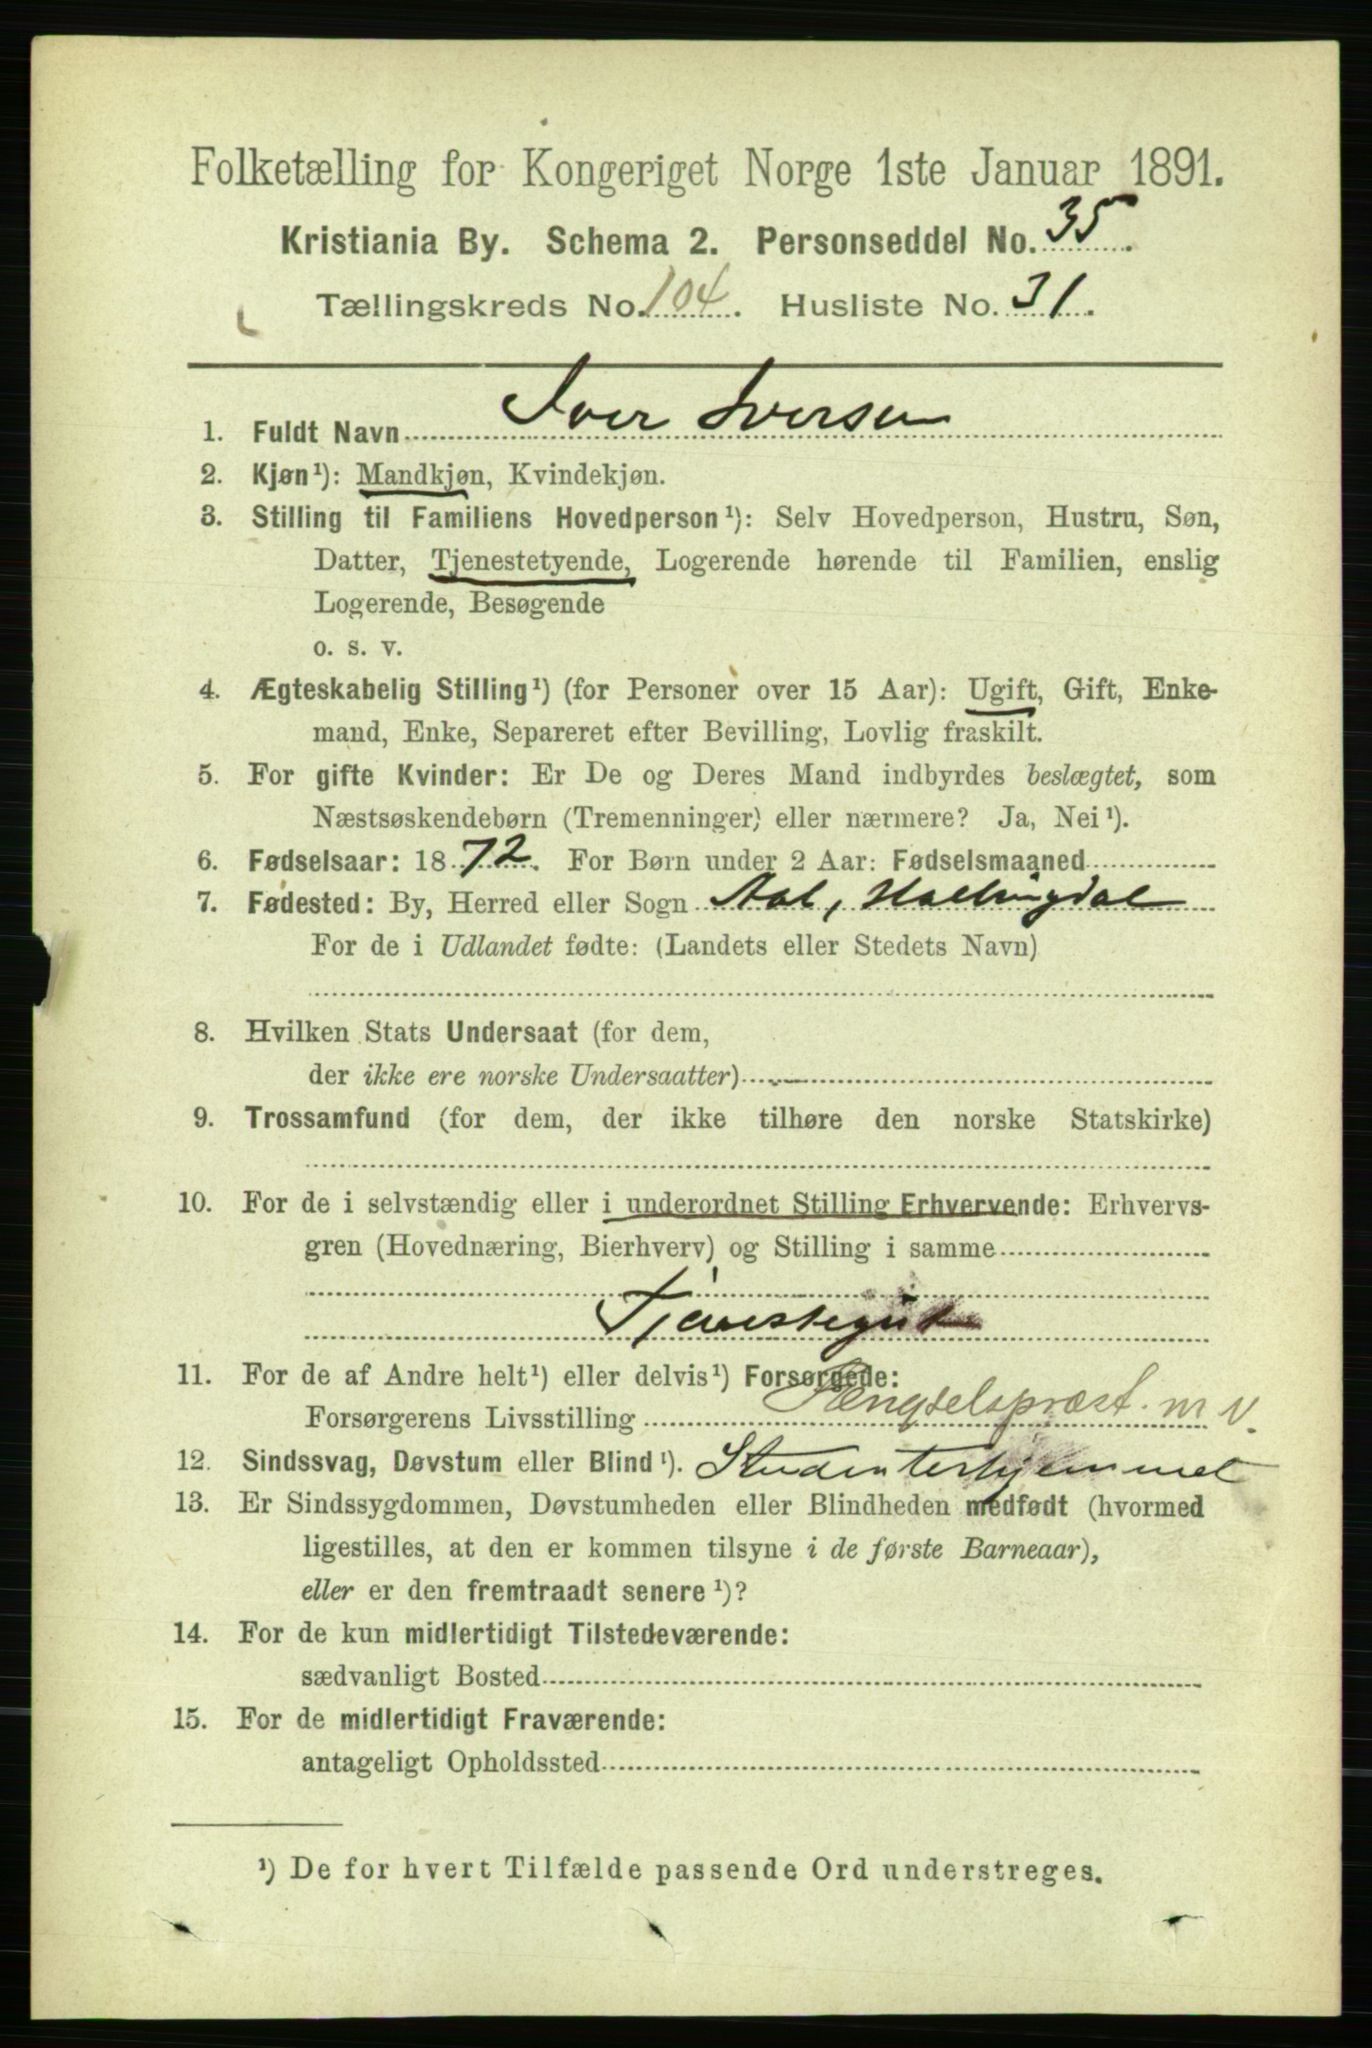 Folketælling for Kongeriget Norge 1ste Januar 1891.
Kristiania By. Schema 2. Personseddel No. 35.
Tællingskreds No. 104. Husliste No. 31.
1. Fuldt Navn Iver Iversen
2. Kjøn¹): Mandkjøn, Kvindekjøn.
3. Stilling til Familiens Hovedperson¹): Selv Hovedperson, Hustru, Søn,
Datter, Tjenestetyende, Logerende hørende til Familien, enslig
Logerende, Besøgende
o. s. v.
4. Ægteskabelig Stilling¹) (for Personer over 15 Aar): Ugift, Gift, Enke-
mand, Enke, Separeret efter Bevilling, Lovlig fraskilt.
5. For gifte Kvinder: Er De og Deres Mand indbyrdes beslægtet, som
Næstsøskendebørn (Tremenninger) eller nærmere? Ja, Nei¹).
6. Fødselsaar: 1872. For Børn under 2 Aar: Fødselsmaaned
7. Fødested: By, Herred eller Sogn Aal, Hallingdal
For de i Udlandet fødte: (Landets eller Stedets Navn)
8. Hvilken Stats Undersaat (for dem,
der ikke ere norske Undersaatter)
9. Trossamfund (for dem, der ikke tilhøre den norske Statskirke)
10. For de i selvstændig eller i underordnet Stilling Erhvervende: Erhvervs-
gren (Hovednæring, Bierhverv) og Stilling i samme
Tjenestegut
11. For de af Andre helt¹) eller delvis¹) Forsørgede:
Forsørgerens Livsstilling Fængselspræst. m V.
12. Sindssvag, Døvstum eller Blind¹). Studenterhjemmet
13. Er Sindssygdommen, Døvstumheden eller Blindheden medfødt (hvormed
ligestilles, at den er kommen tilsyne i de første Barneaar),
eller er den fremtraadt senere¹)?
14. For de kun midlertidigt Tilstedeværende:
sædvanligt Bosted
15. For de midlertidigt Fraværende:
antageligt Opholdssted
¹) De for hvert Tilfælde passende Ord understreges.